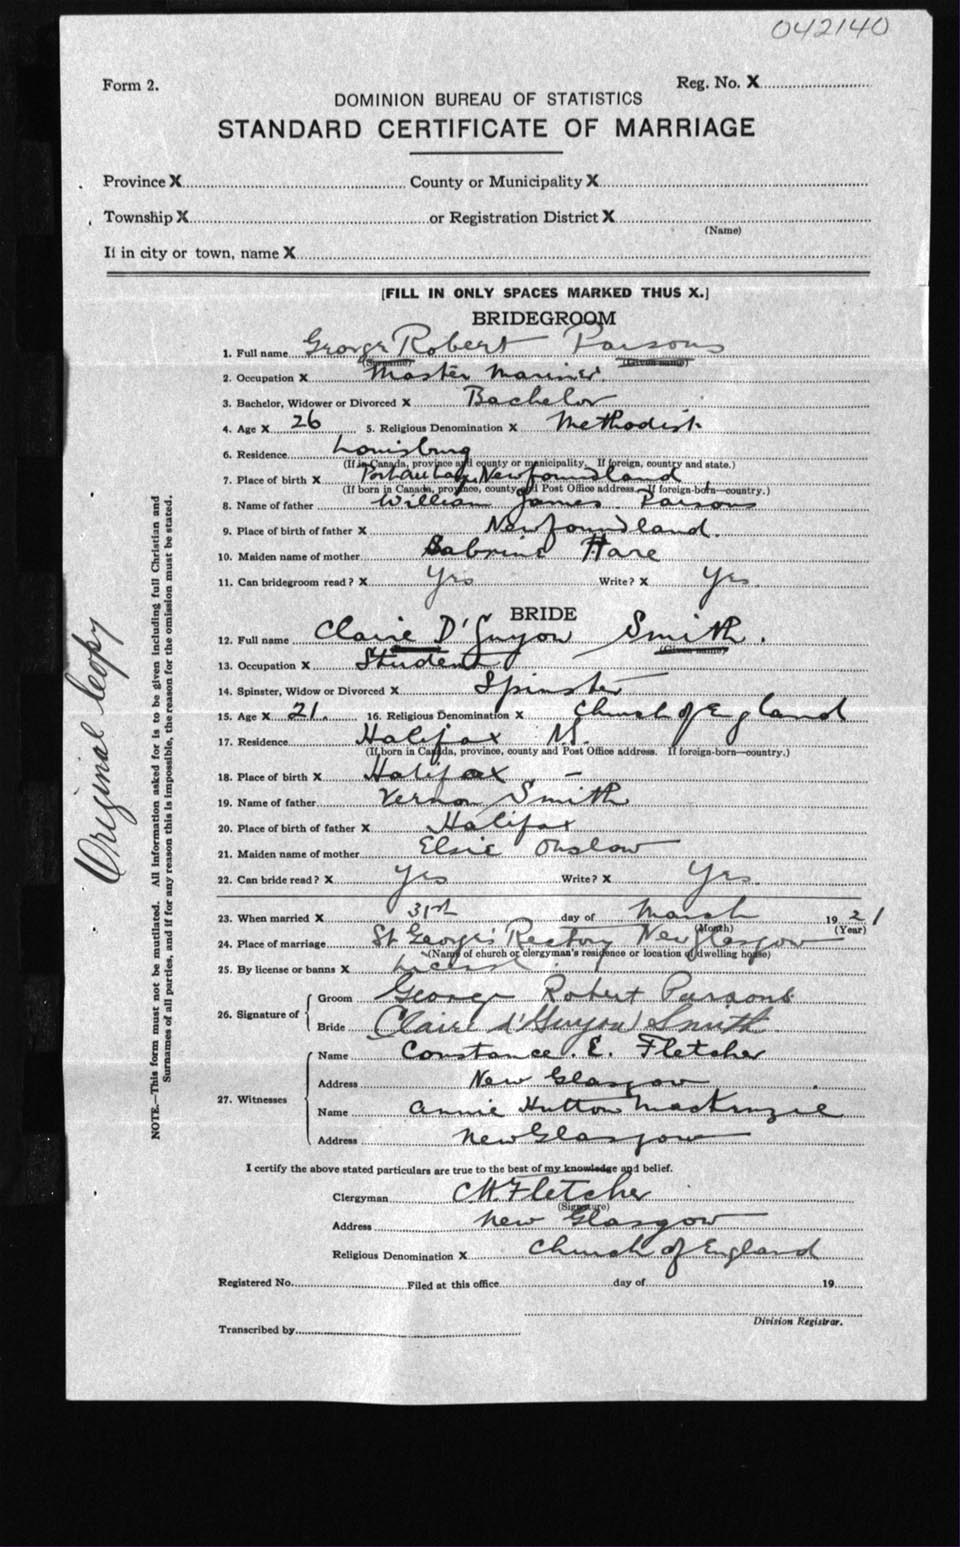 042140
Form 2.
Reg. No. X
DOMINION BUREAU OF STATISTICS
STANDARD CERTIFICATE OF MARRIAGE
Province X County or Municipality X
Township X or Registration District X
(Name)
If in city or town, name X
[FILL IN ONLY SPACES MARKED THUS X.]
BRIDEGROOM
1. Full name George Robert Parsons
(Surname) (Given name)
2. Occupation X Master Mariner.
3. Bachelor, Widower or Divorced X Bachelor
4. Age X 26 5. Religious Denomination X Methodist
6. Residence Louisburg
(If in Canada, province and county or municipality. If foreign, country and state.)
7. Place of birth X Newfoundland
(If born in Canada, province, county and Post Office address. If foreign-born—country.)
8. Name of father William James Parsons
9. Place of birth of father X Newfoundland.
10. Maiden name of mother Sabrina Hare
11. Can bridegroom read? X Yes Write? X Yes
BRIDE
12. Full name Claire D'Guyon Smith.
(Given name)
13. Occupation X Student
14. Spinster, Widow or Divorced X Spinster
15. Age X 21. 16. Religious Denomination X Church of England
17. Residence Halifax N.S.
(If born in Canada, province, county and Post Office address. If foreign-born—country.)
18. Place of birth X Halifax —
19. Name of father Vernon Smith
20. Place of birth of father X Halifax
21. Maiden name of mother Elsie Onslow
22. Can bride read? X Yes Write? X Yes.
23. When married X 31st day of March 1921
(Month) (Year)
24. Place of marriage St George's Rectory New Glasgow
(Name of church or clergyman's residence or location of dwelling house)
25. By license or banns X License
26. Signature of Groom George Robert Parsons
Bride Claire d'Guyon Smith
27. Witnesses Name Constance. E. Fletcher
Address New Glasgow
Name Annie Hutton MacKenzie
Address New Glasgow
I certify the above stated particulars are true to the best of my knowledge and belief.
Clergyman C.W. Fletcher
(Signature)
Address New Glasgow
Religious Denomination X Church of England
Registered No. Filed at this office day of 19
Division Registrar.
Transcribed by
NOTE.—This form must not be mutilated. All information asked for is to be given including full Christian and
Surnames of all parties, and if for any reason this is impossible, the reason for the omission must be stated.
Original Copy